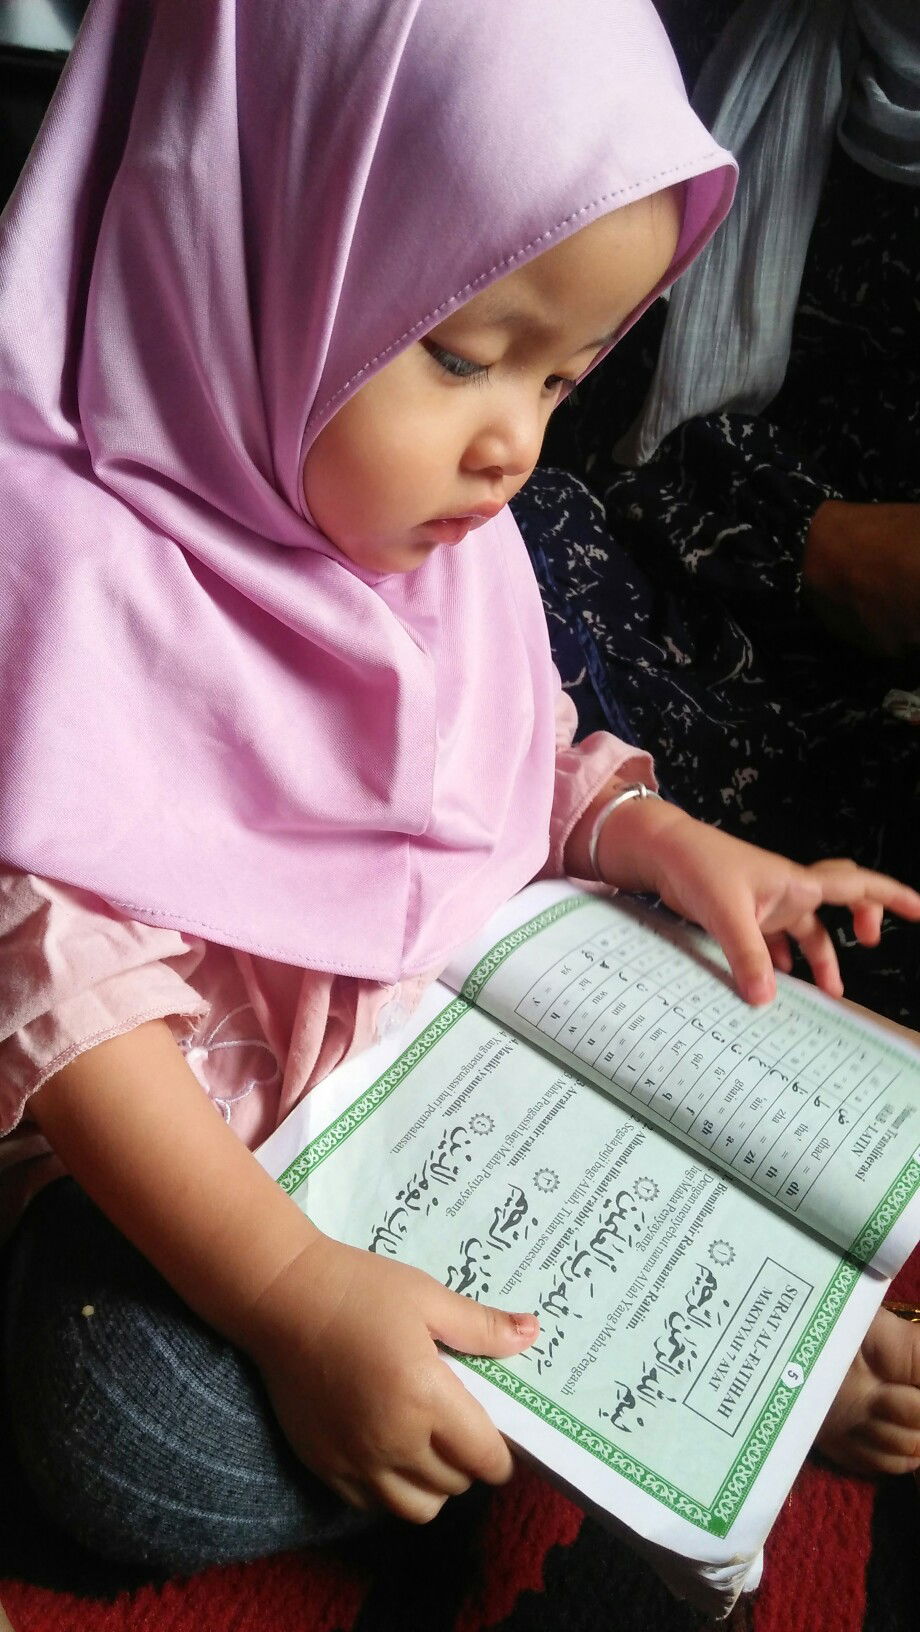 Transliterasi
ARAB - LATIN
ض = dhad = dh
ط = tha' = th
ظ = zha = zh
ع = 'ain = a-
غ = ghain = gh
ف = fa' = f
ق = qaf = q
ك = kaf = k
ل = lam = l
م = mim = m
ن = nun = n
و = wau = w
ه = ha' = h
ي = ya = y
5
SURAT AL-FATIHAH
MAKIYYAH 7 AYAT
بِسْمِ اللّٰهِ الرَّحْمٰنِ الرَّحِيْمِ ١
Bismillaahir Rahmaanir Rahiim.
Dengan menyebut nama Allah Yang Maha Pengasih
lagi Maha Penyayang
رَبِّ الْعٰلَمِيْنَ
2. Alhamdu lillaahi rabbil 'aalamiin.
Segala puji bagi Allah, Tuhan semesta alam,
الرَّحِيْمِ
3. Arrahmaanir rahiim.
Maha Pengasih lagi Maha Penyayang
يَوْمِ الدِّيْنِ ٤
4. Maaliki yaumiddiin.
Yang menguasai hari pembalasan